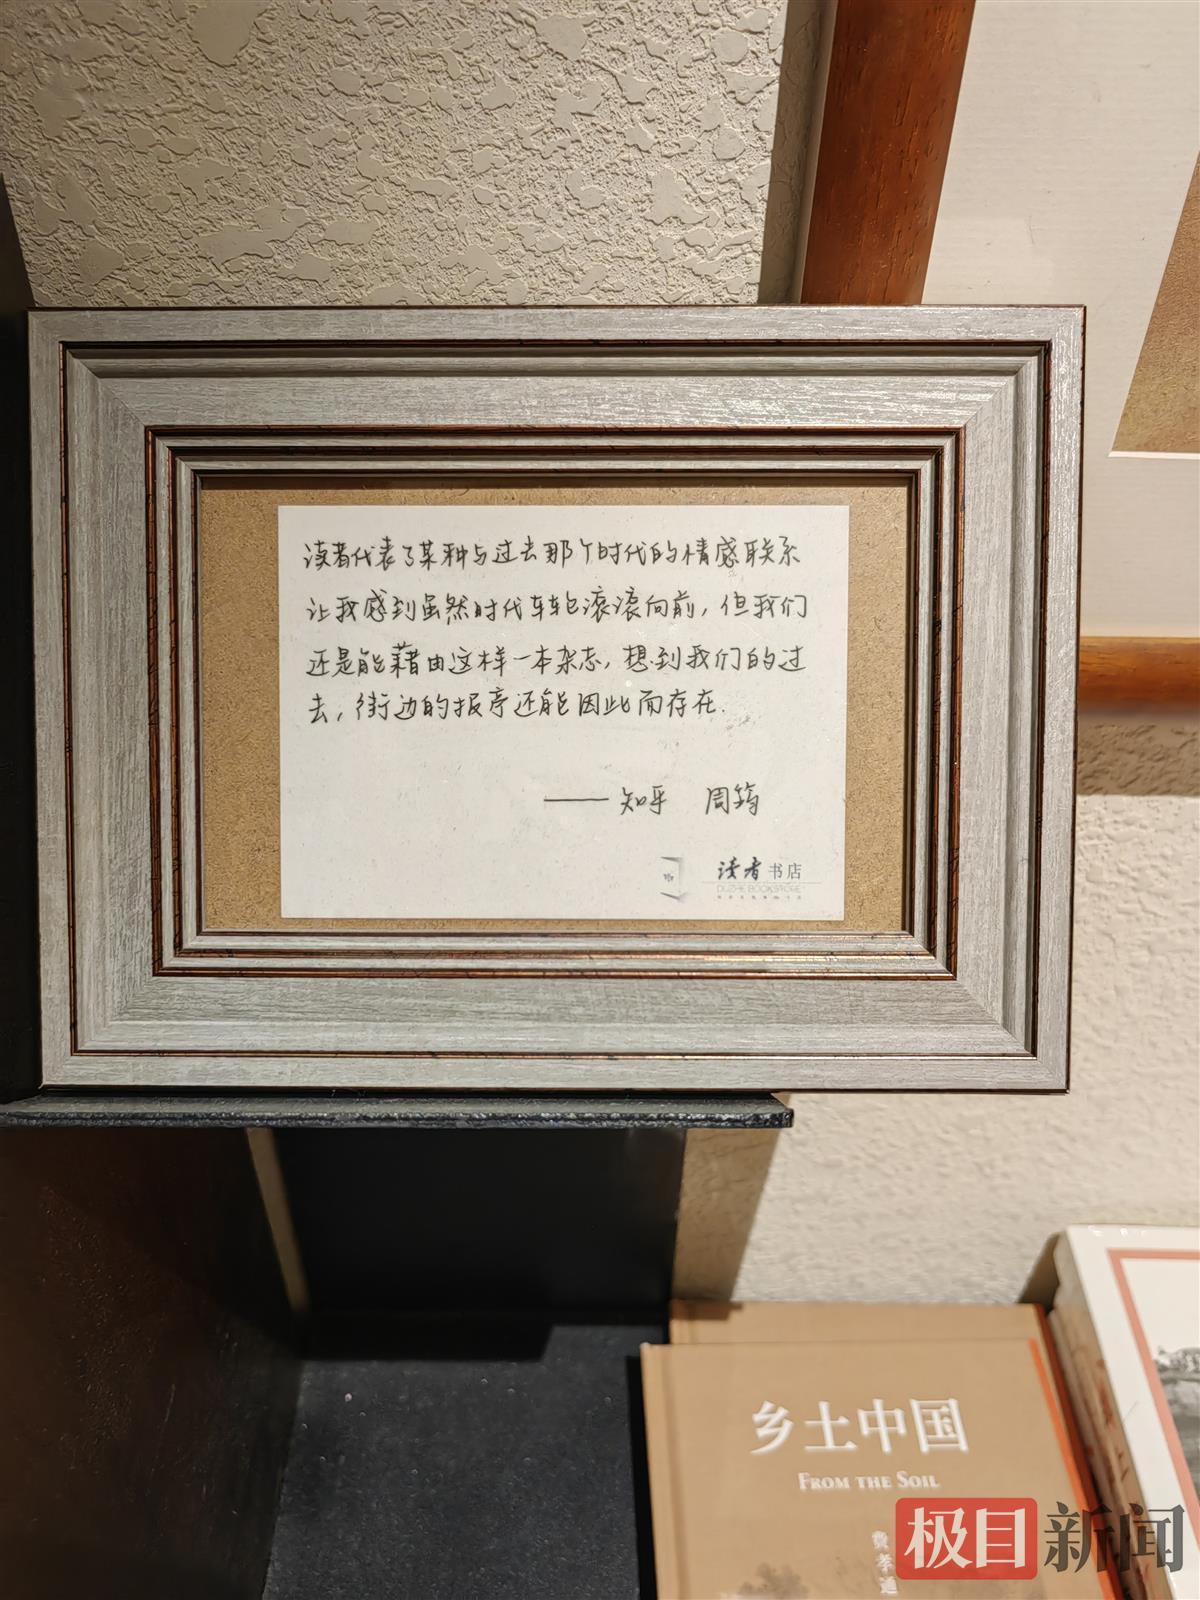 读者代表了某种与过去那个时代的情感联系
让我感到虽然时代车轮滚滚向前，但我们
还是能藉由这样一本杂志，想到我们的过
去，街边的报亭还能因此而存在.
——知乎 周筠
读者书店
DUZHE BOOKSTORE
乡土中国
FROM THE SOIL
费孝通
极目新闻